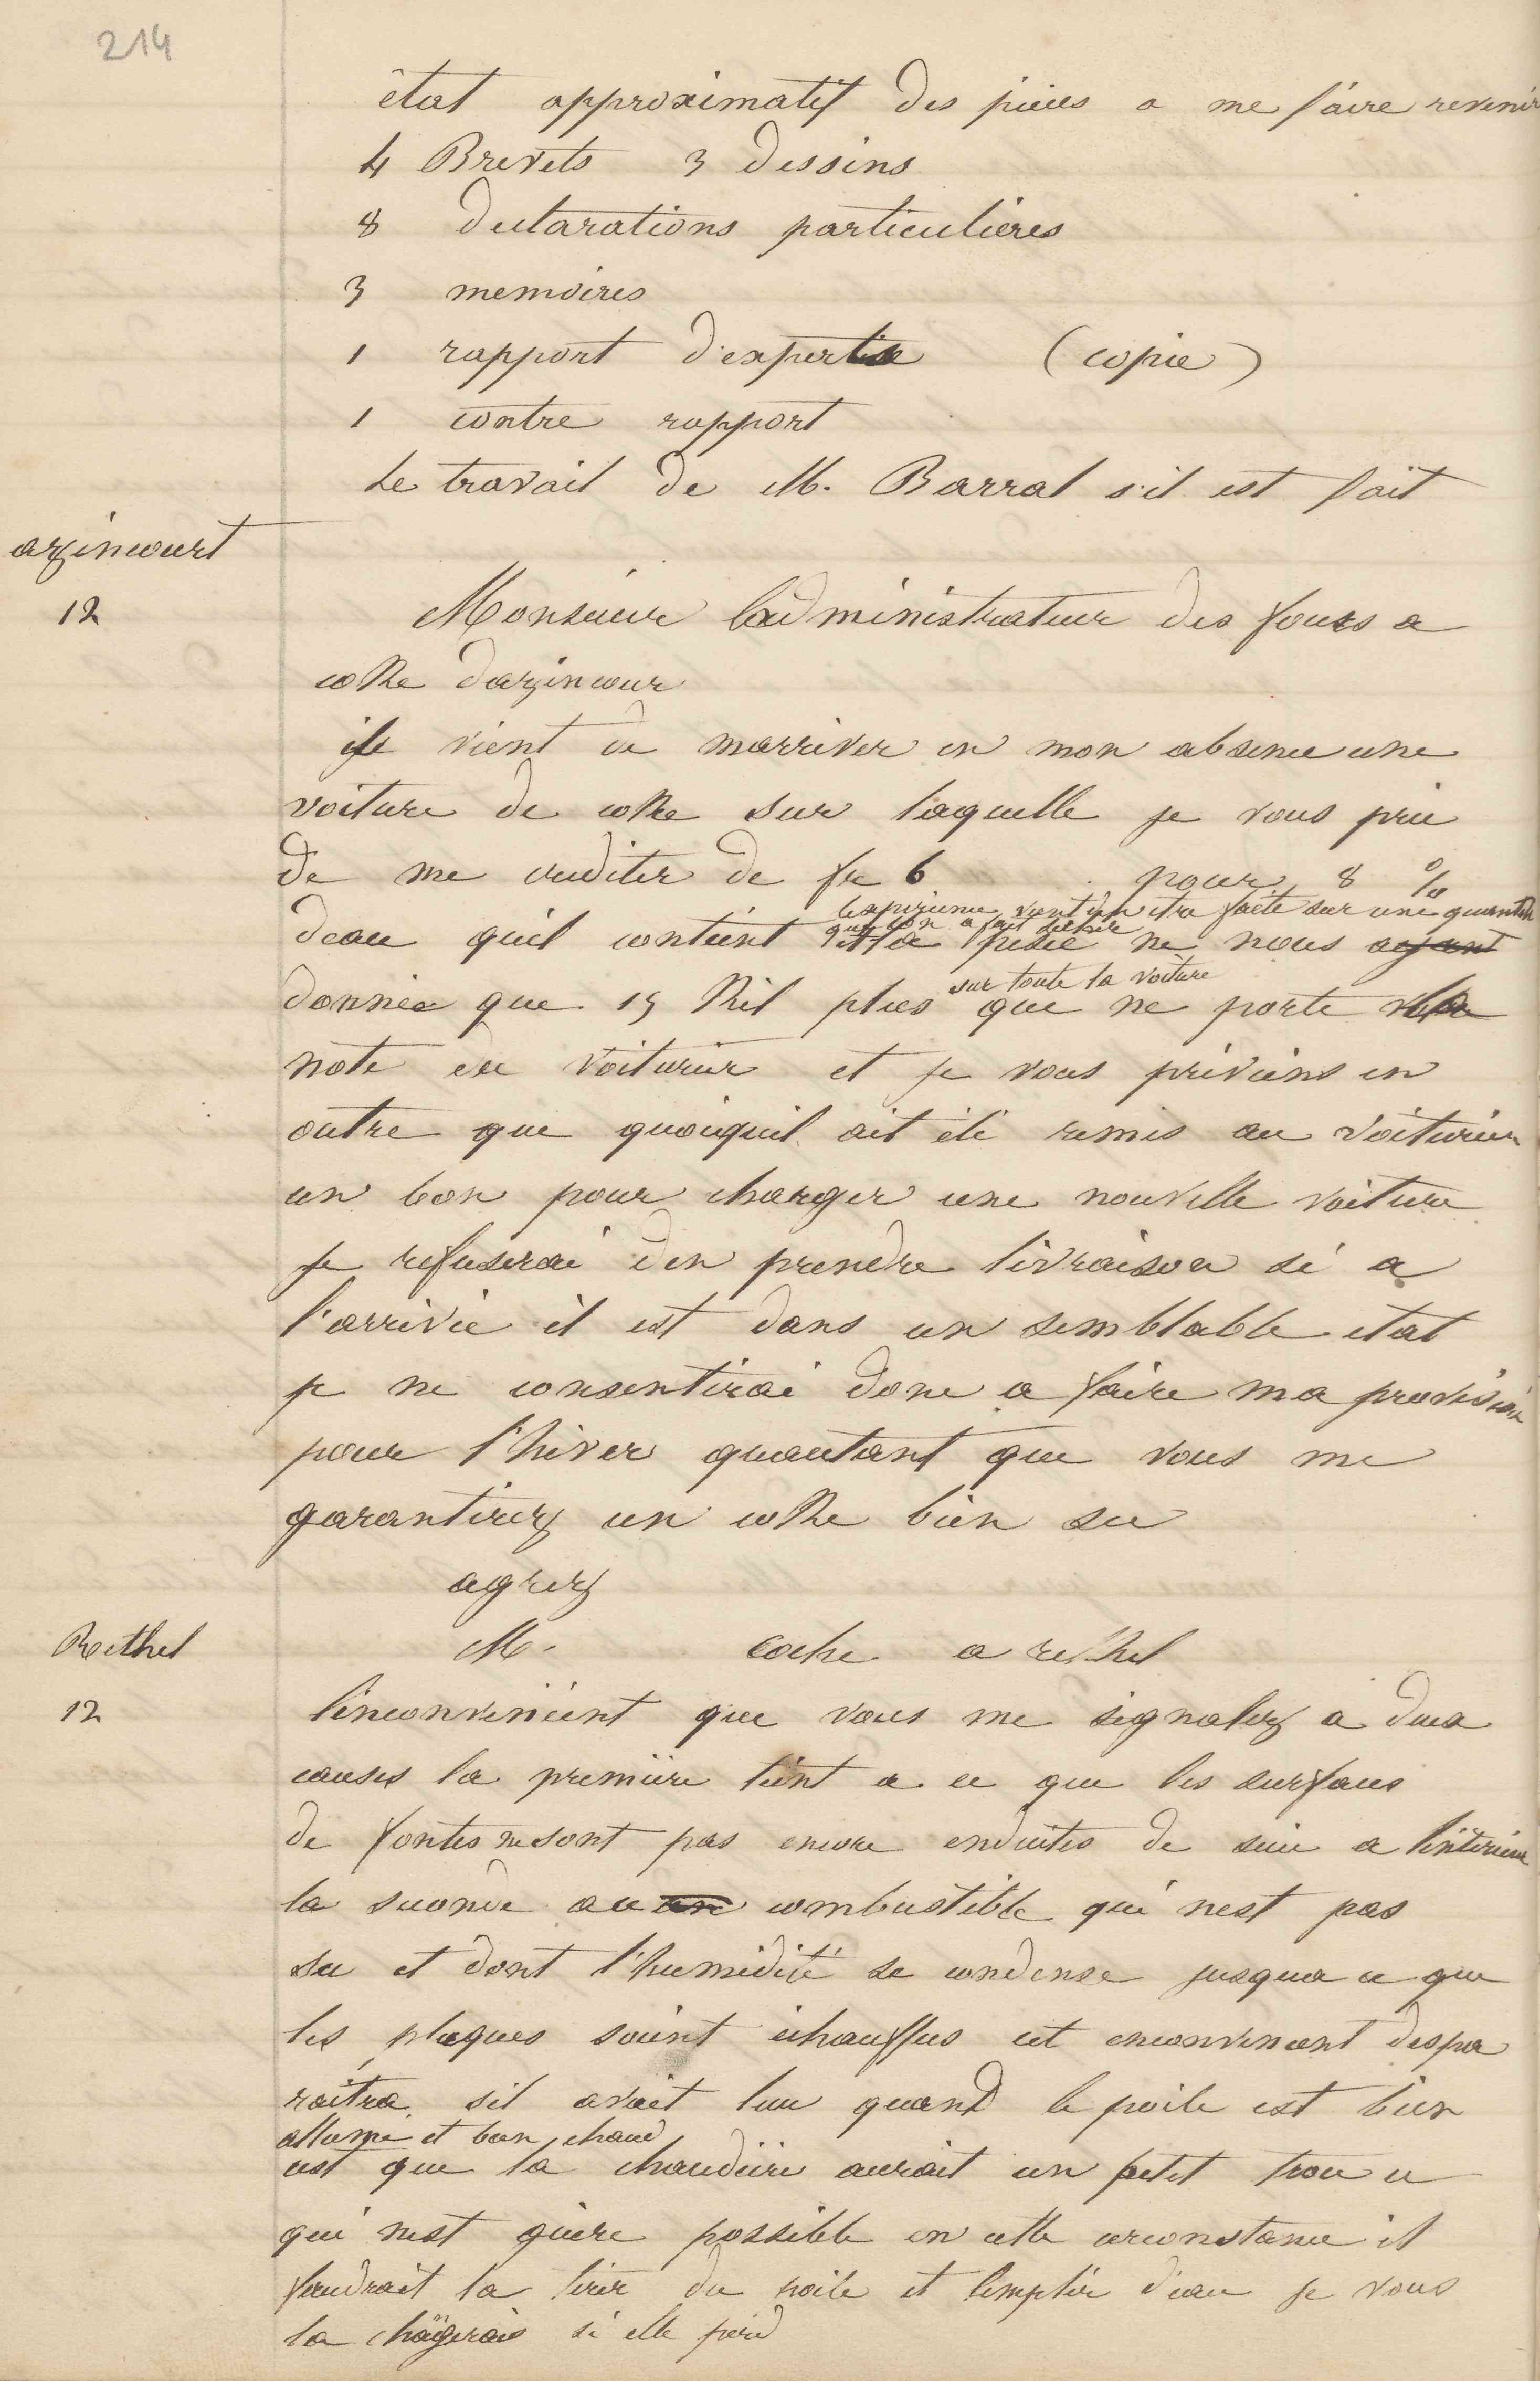 214
état approximatif des pièces a me faire revenir
4 Brevets 3 dessins
8 declarations particulières
3 memoires
1 rapport d'expertise (copie)
1 contre rapport
Le travail de M. Barral s'il est fait
azincourt
12
Monsieur ladministrateur des fours a
coke dazincour
il vient de marriver en mon absence une
voiture de coke sur laquelle je vous prie
de me crediter de fr 6 pour 8 %
lexperience vient den etre faite sur une quantité
que lon a fait secher
deau quil contient et la pesée ne nous ayant
sur toute la voiture
donnée que 15 Kil plus que ne porte la
note du voiturier et je vous previens en
outre que quoiquil ait été remis au voiturier
un bon pour charger une nouvelle voiture
je refuserai den prendre livraison si a
l'arrivée il est dans un semblable etat
je ne consentirai donc a faire ma provision
pour l'hiver quautant que vous me
garantirez un coke bien sec
agreez
Rethel
12
M. coche a rethel
linconvenient que vous me signalez a deux
causes la première tient a ce que les surfaces
de fontes ne sont pas encore enduites de suie a lintérieur
la seconde au un combustible qui nest pas
sec et dont l'humidité se condense jusqua ce que
les plaques soient échauffées cet inconvenient dispa
raitra sil avait lieu quand le poile est bien
allumé et bien chaud
cest que la chaudière aurait un petit trou ce
qui nest guère possible en cette circonstance il
faudrait la tirer du poile et lemplir d'eau je vous
la changerais si elle perd